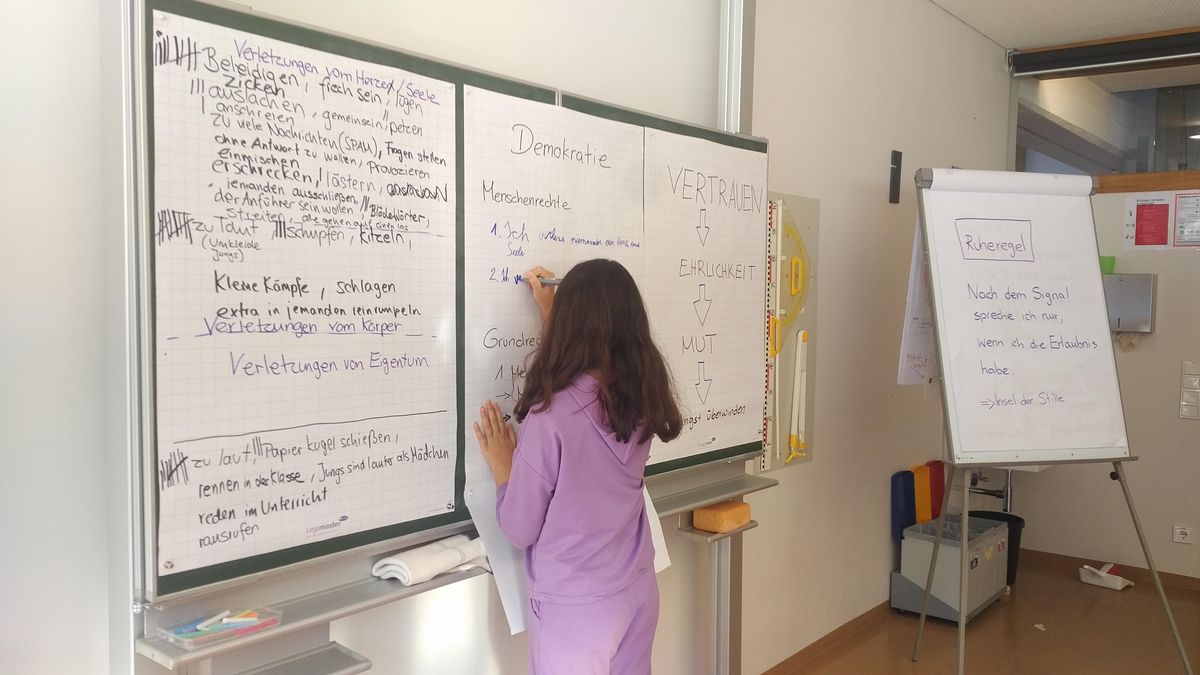 Verletzungen vom Herzen / Seele
Beleidigen, fiech sein, lügen
zicken
auslachen, gemeinsein, petzen
anschreien
zu viele Nachrichten (SPAM), Fragen stellen
ohne Antwort zu wollen, Provozieren
einmischen
erschrecken, lästern,
jemanden ausschließen, Blödewörter,
der Anführer sein wollen,
streiten, alle gehen auf einen los
zu laut, schupfen, kitzeln,
(Umkleide Jungs)
Kleine Kämpfe, schlagen
extra in jemanden reinrumpeln
Verletzungen vom Körper
Verletzungen von Eigentum
zu laut, Papier kugel schießen,
rennen in der Klasse, Jungs sind lauter als Mädchen
reden im Unterricht
rausrufen
Legamaster
Demokratie
Menschenrechte
1. Ich
Seele
2. Ich
Grundrec
1. Me
VERTRAUEN
EHRLICHKEIT
MUT
ngst überwinden
Legamaster
Ruheregel
Nach dem Signal
spreche ich nur,
wenn ich die Erlaubnis
habe
⇒ Insel der Stille